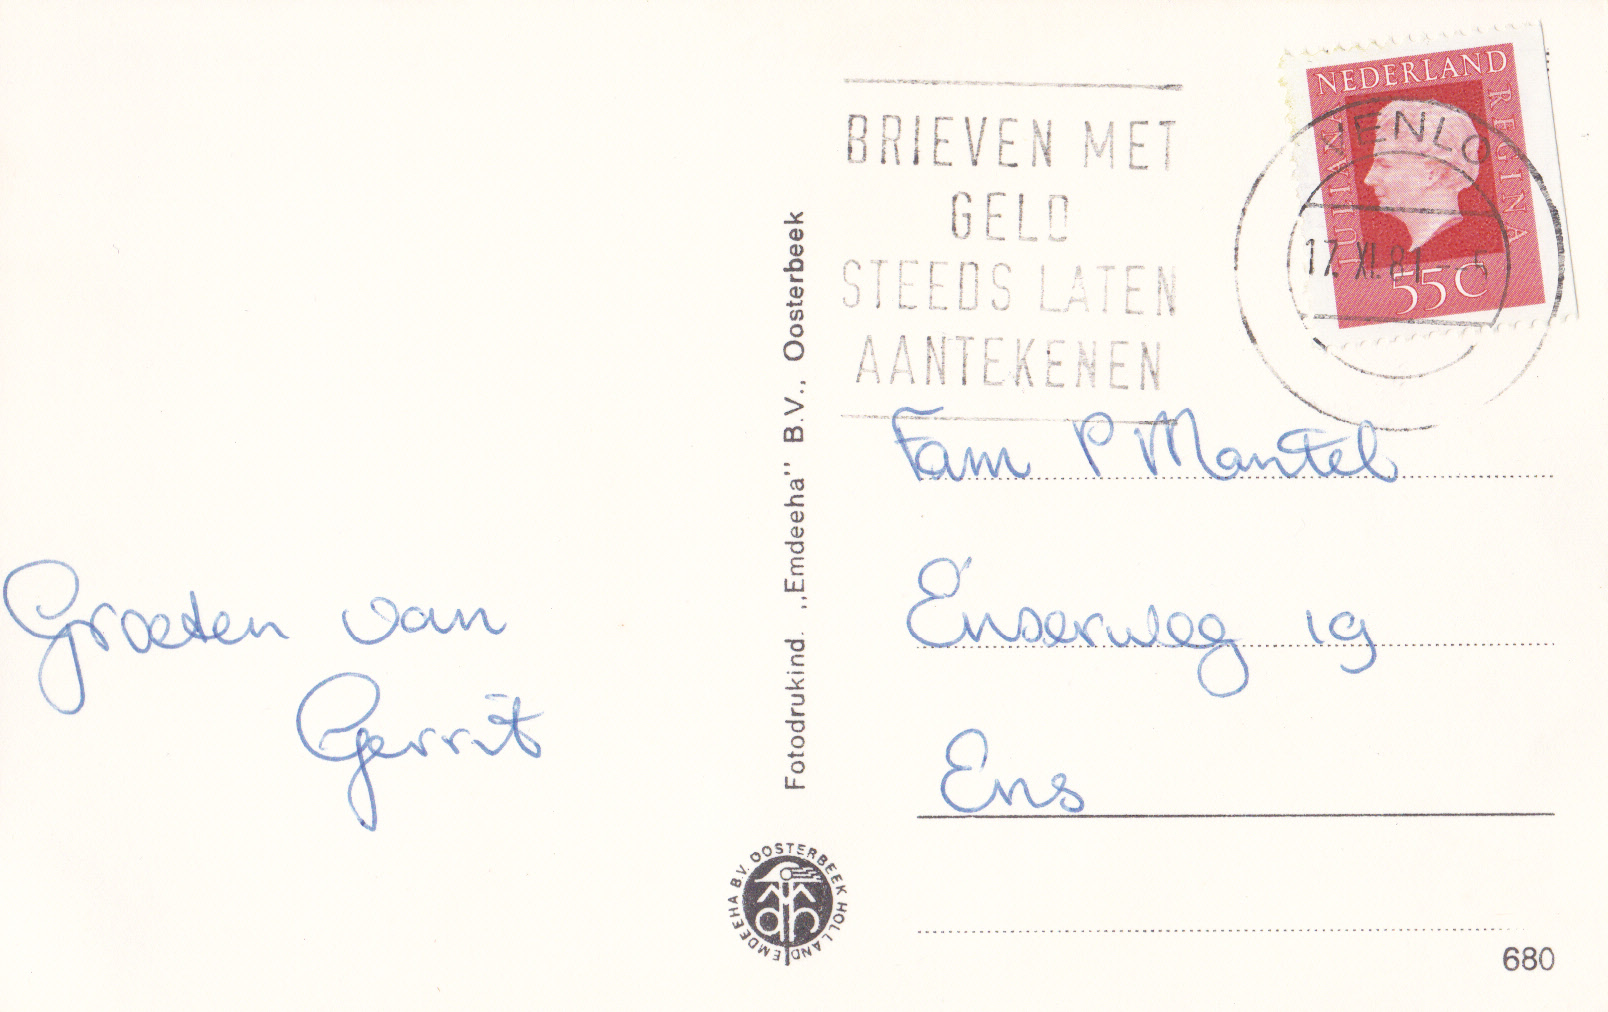 BRIEVEN MET
GELD
STEEDS LATEN
AANTEKENEN
NEDERLAND
JULIANA
REGINA
55C
VENLO
17.XI.81
Fam P Mantel
Enserweg 19
Ens
Groeten van
Gerrit
Fotodrukind. „Emdeeha” B.V., Oosterbeek
EMDEEHA B.V. OOSTERBEEK HOLLAND
680